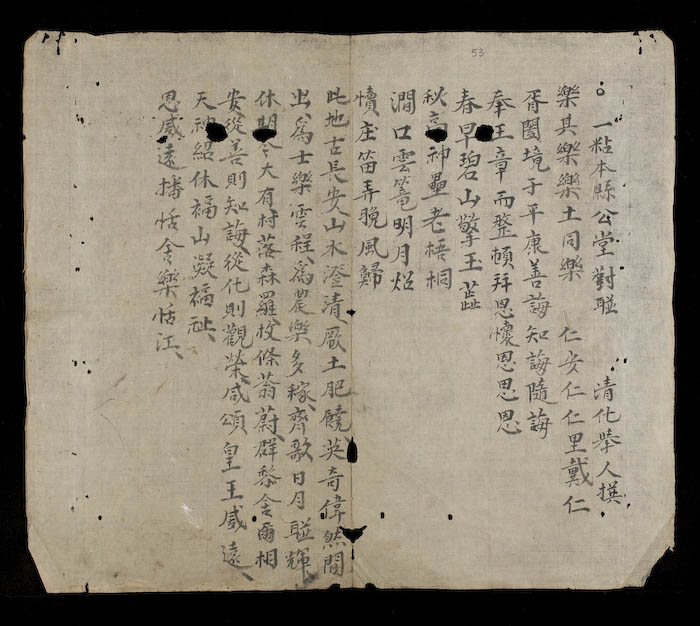 53
○一粘本縣公堂對聯 清化舉人撰
樂其樂樂土同樂 仁安仁仁里戴仁
胥閭境于平康善誨知誨隨誨
奉王章而整頓拜恩懷恩思恩
春早碧山擎玉蓝
秋高神壘老梧桐
澗口雲篭明月炤
犢庄笛弄晚風歸
此地古長安山水澄清厥土肥饒英奇偉然間
出為士樂雲程為農樂多稼齊歌日月聮輝
休期今大有村落森羅枝條蓊蔚群黎會爾相
安從善則知誨從化則觀榮咸頌皇王威遠
天神紹休福山凝福祉
恩威遠播恬會樂恬江